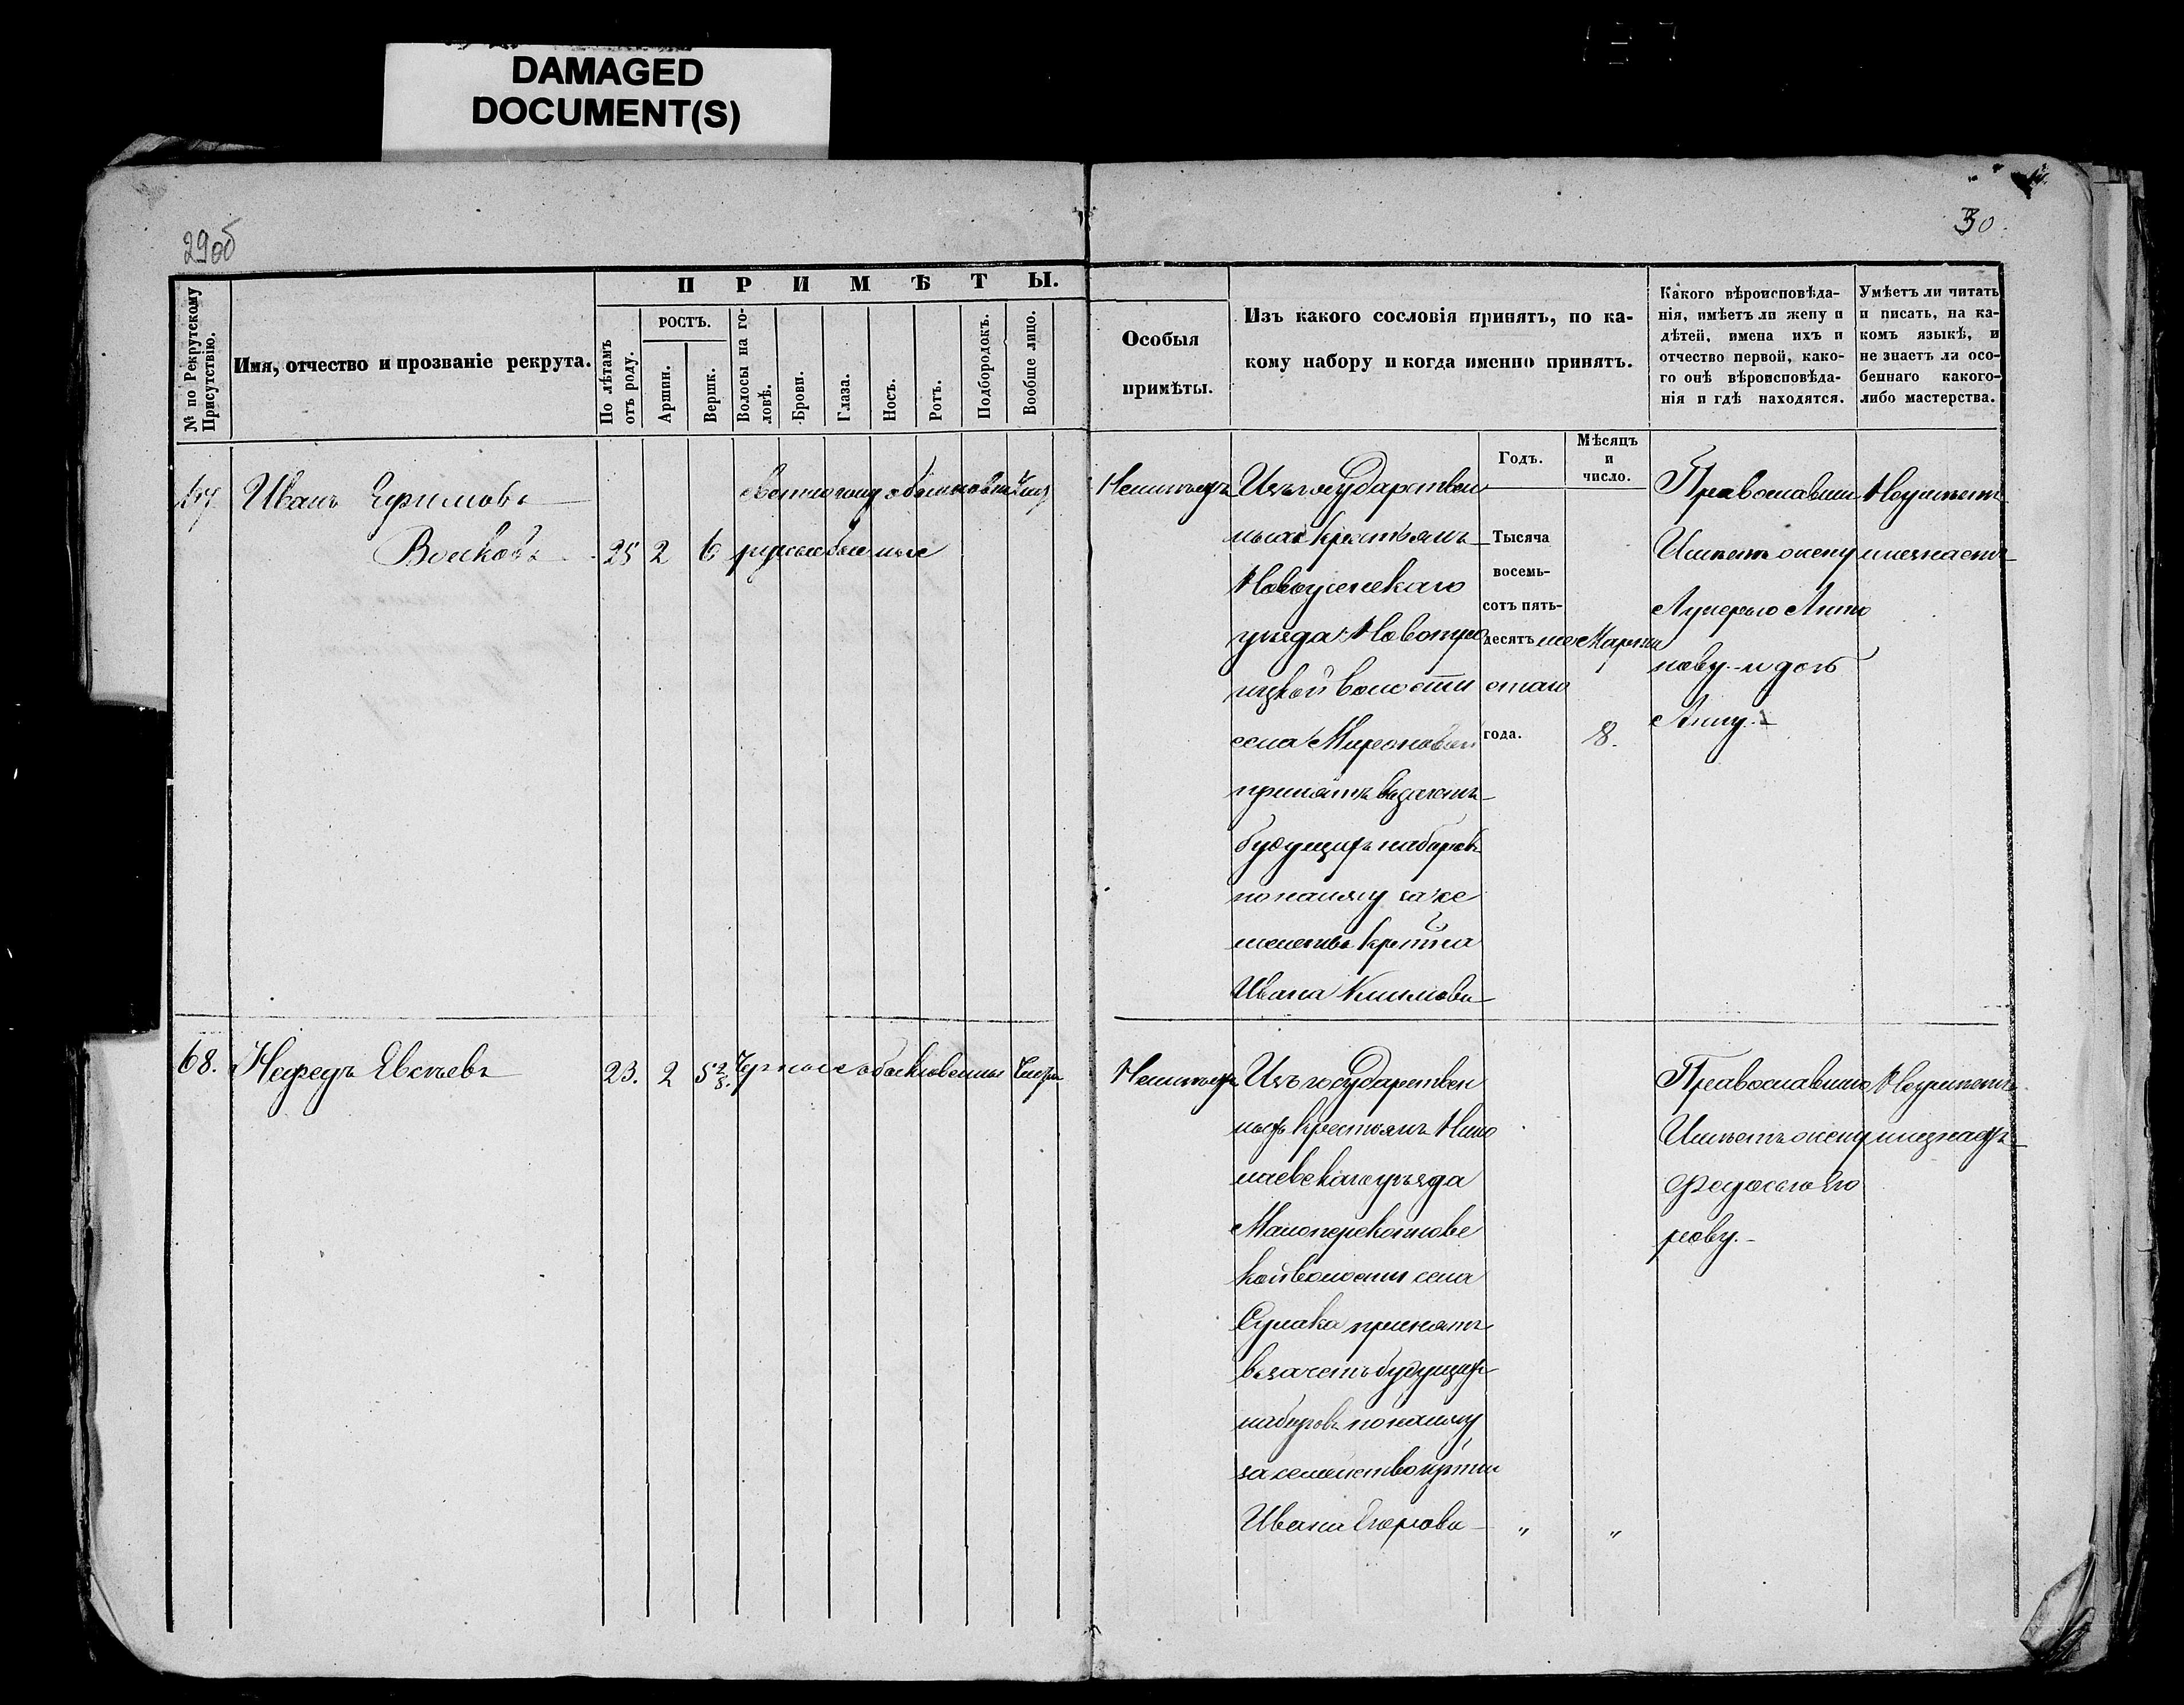 DAMAGED
DOCUMENT(S)
29об
30.
П Р И М Ѣ Т Ы.
№ по Рекрутскому Присутствію.
Имя, отчество и прозваніе рекрута.
По лѣтамъ отъ роду.
РОСТЪ.
Аршин.
Вершк.
Волосы на головѣ.
Брови.
Глаза.
Носъ.
Ротъ.
Подбородокъ.
Вообще лицо.
Особыя
примѣты.
Изъ какого сословія принятъ, по ка-
кому набору и когда именно принятъ.
Годъ.
Мѣсяцъ
и
число.
Какого вѣроисповѣда-
нія, имѣетъ ли жену и
дѣтей, имена ихъ и
отчество первой, како-
го онѣ вѣроисповѣда-
нія и гдѣ находятся.
Умѣетъ ли читать
и писать, на ка-
комъ языкѣ, и
не знаетъ ли осо-
беннаго какого-
либо мастерства.
67
Иванъ Ефимовъ
Волковъ
25 2 6
светло обыкновен чист
русые
Неимѣетъ
Изъ государствен
ныхъ крестьянъ
Новоузенскаго
уѣзда Новотро
ицкой волости
села Мироновки
принятъ взачетъ
будущихъ наборовъ
по найму за се
мейство кр-на
Ивана Климова
Тысяча
восемь-
сотъ пять-
десятъ ше
стаго
года.
Марта
8.
Православнаго
Имѣетъ жену
Лукерью Анто
нову и дочь
Анну.
Неумѣетъ
инезнаетъ
68.
Нефедъ Евсѣевъ
23. 2 5 2/8.
Черные обыкновенные чистое
Неимѣетъ
Изъ государствен
ныхъ крестьянъ Нико
лаевскаго уѣзда
Малоперекопновс
кой волости села
Сулака принятъ
взачетъ будущихъ
наборовъ по найму
за семейство кр-на
Ивана Егорова
" "
Православнаго
Имѣетъ жену
Федосью Его
рову.
Неумѣетъ
инезнаетъ